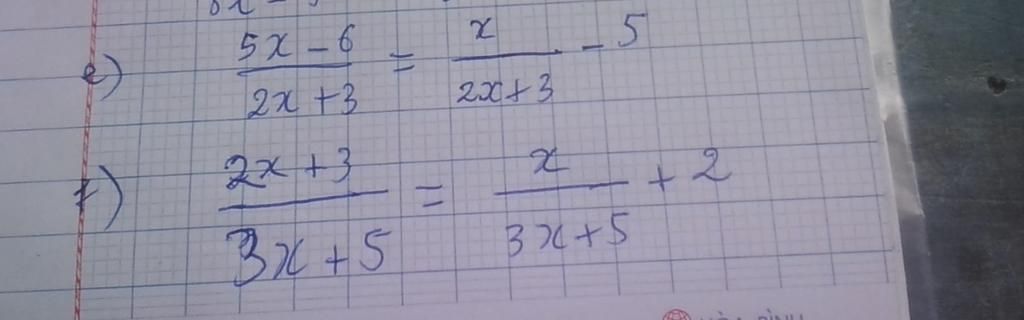 e) (5x - 6)/(2x + 3) = x/(2x + 3) - 5
f) (2x + 3)/(3x + 5) = x/(3x + 5) + 2